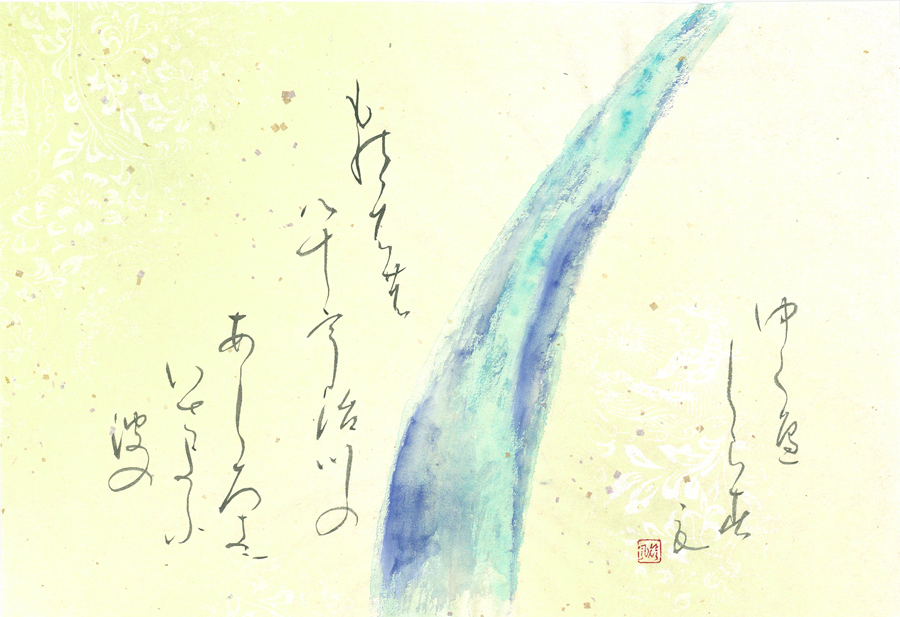 もののふの
八十宇治川の
あしろ木に
いさよふ
波の
ゆくへ
しら春
毛